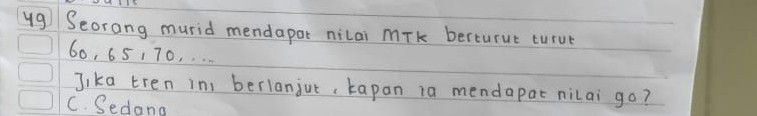 49 Seorang murid mendapat nilai MTK berturut turut
60, 65, 70, ....
Jika tren ini berlanjut, kapan ia mendapat nilai 90?
C. Sedang